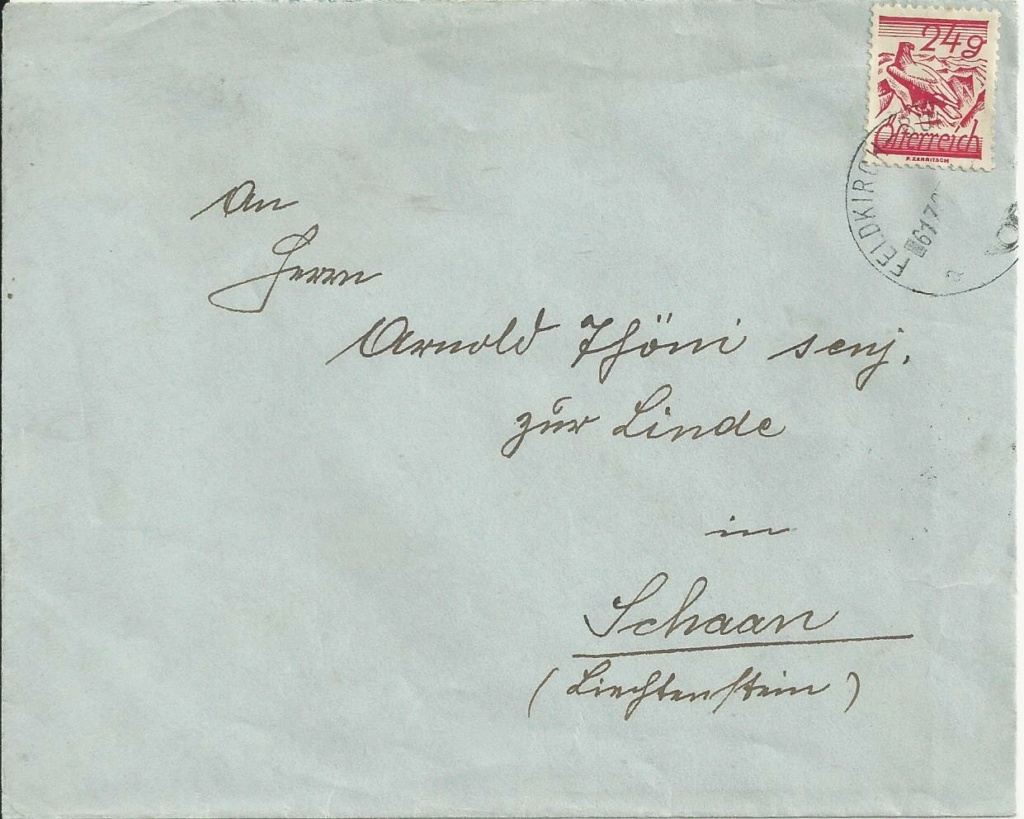 24g
Österreich
FELDKIRCH
a
An
Herrn
Arnold Thöni senj.
zur Linde
in
Schaan
(Liechtenstein)